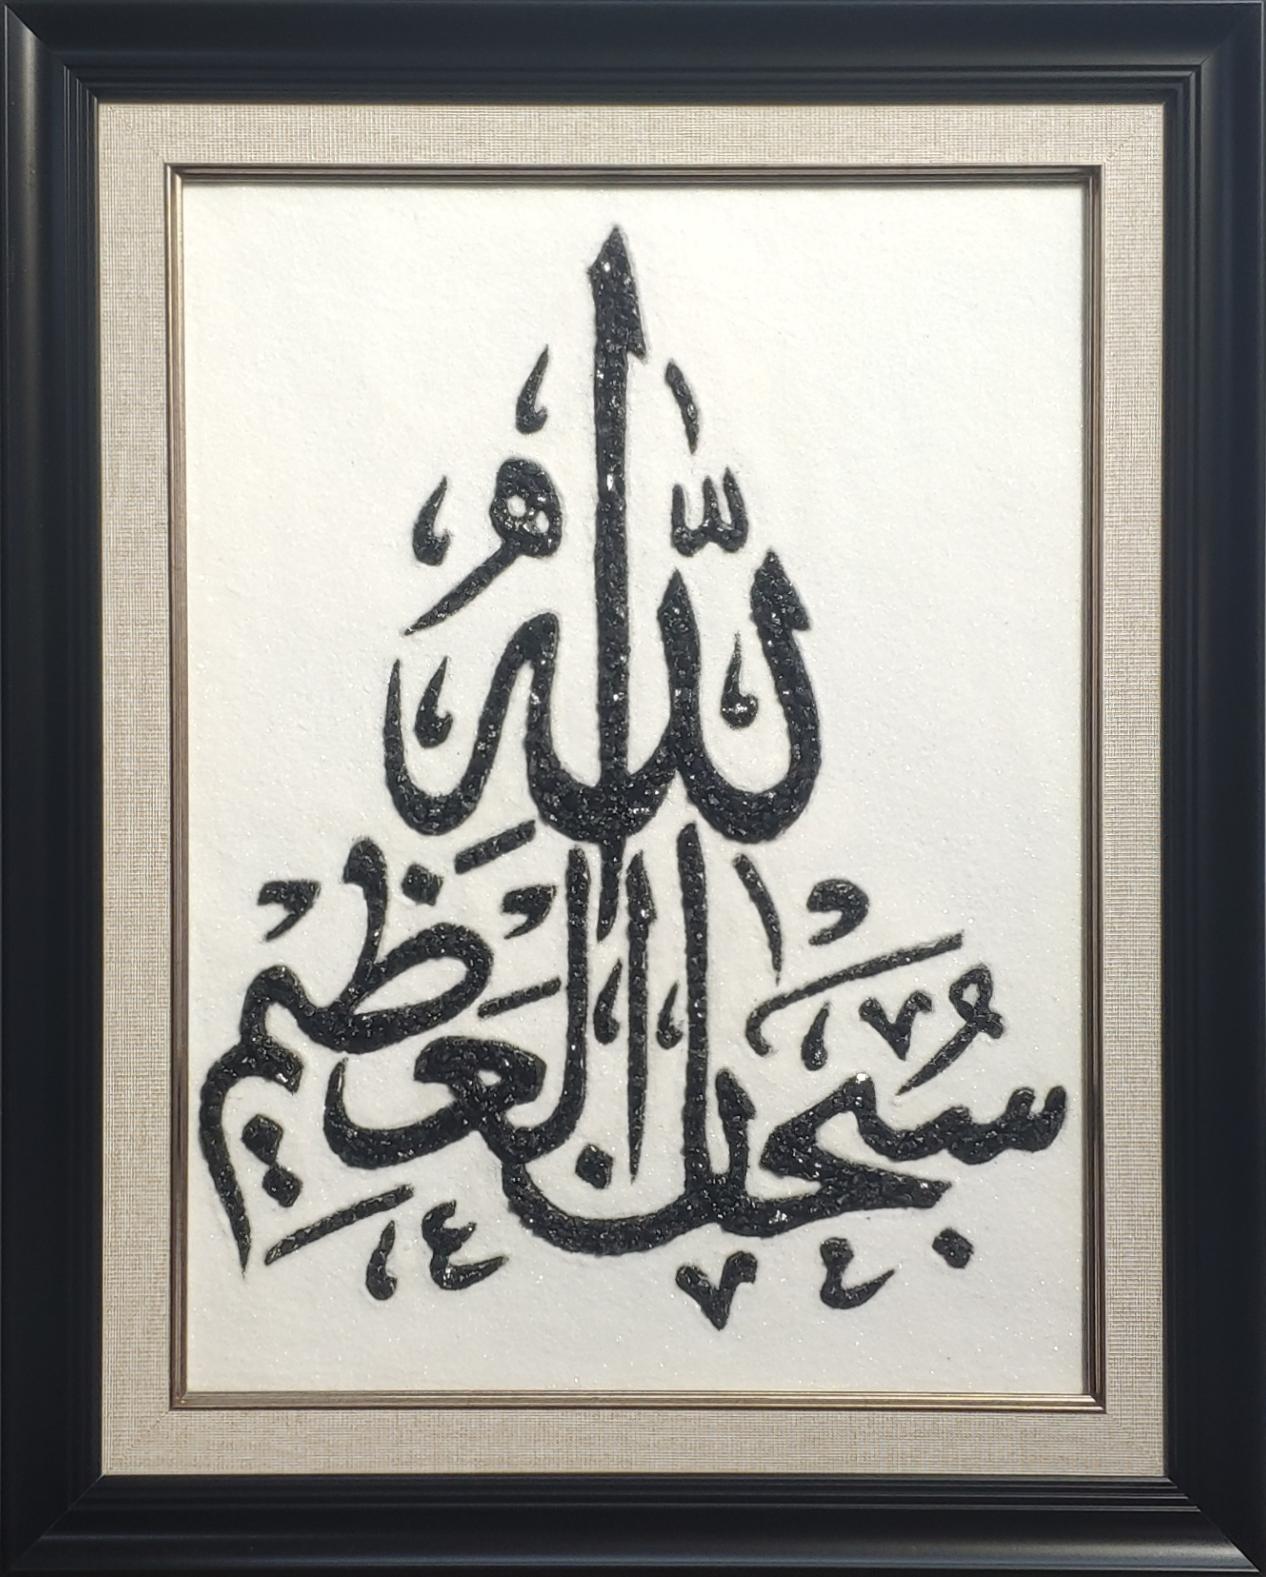 سُبْحَانَ اللّٰهِ الْعَظِيْمِ